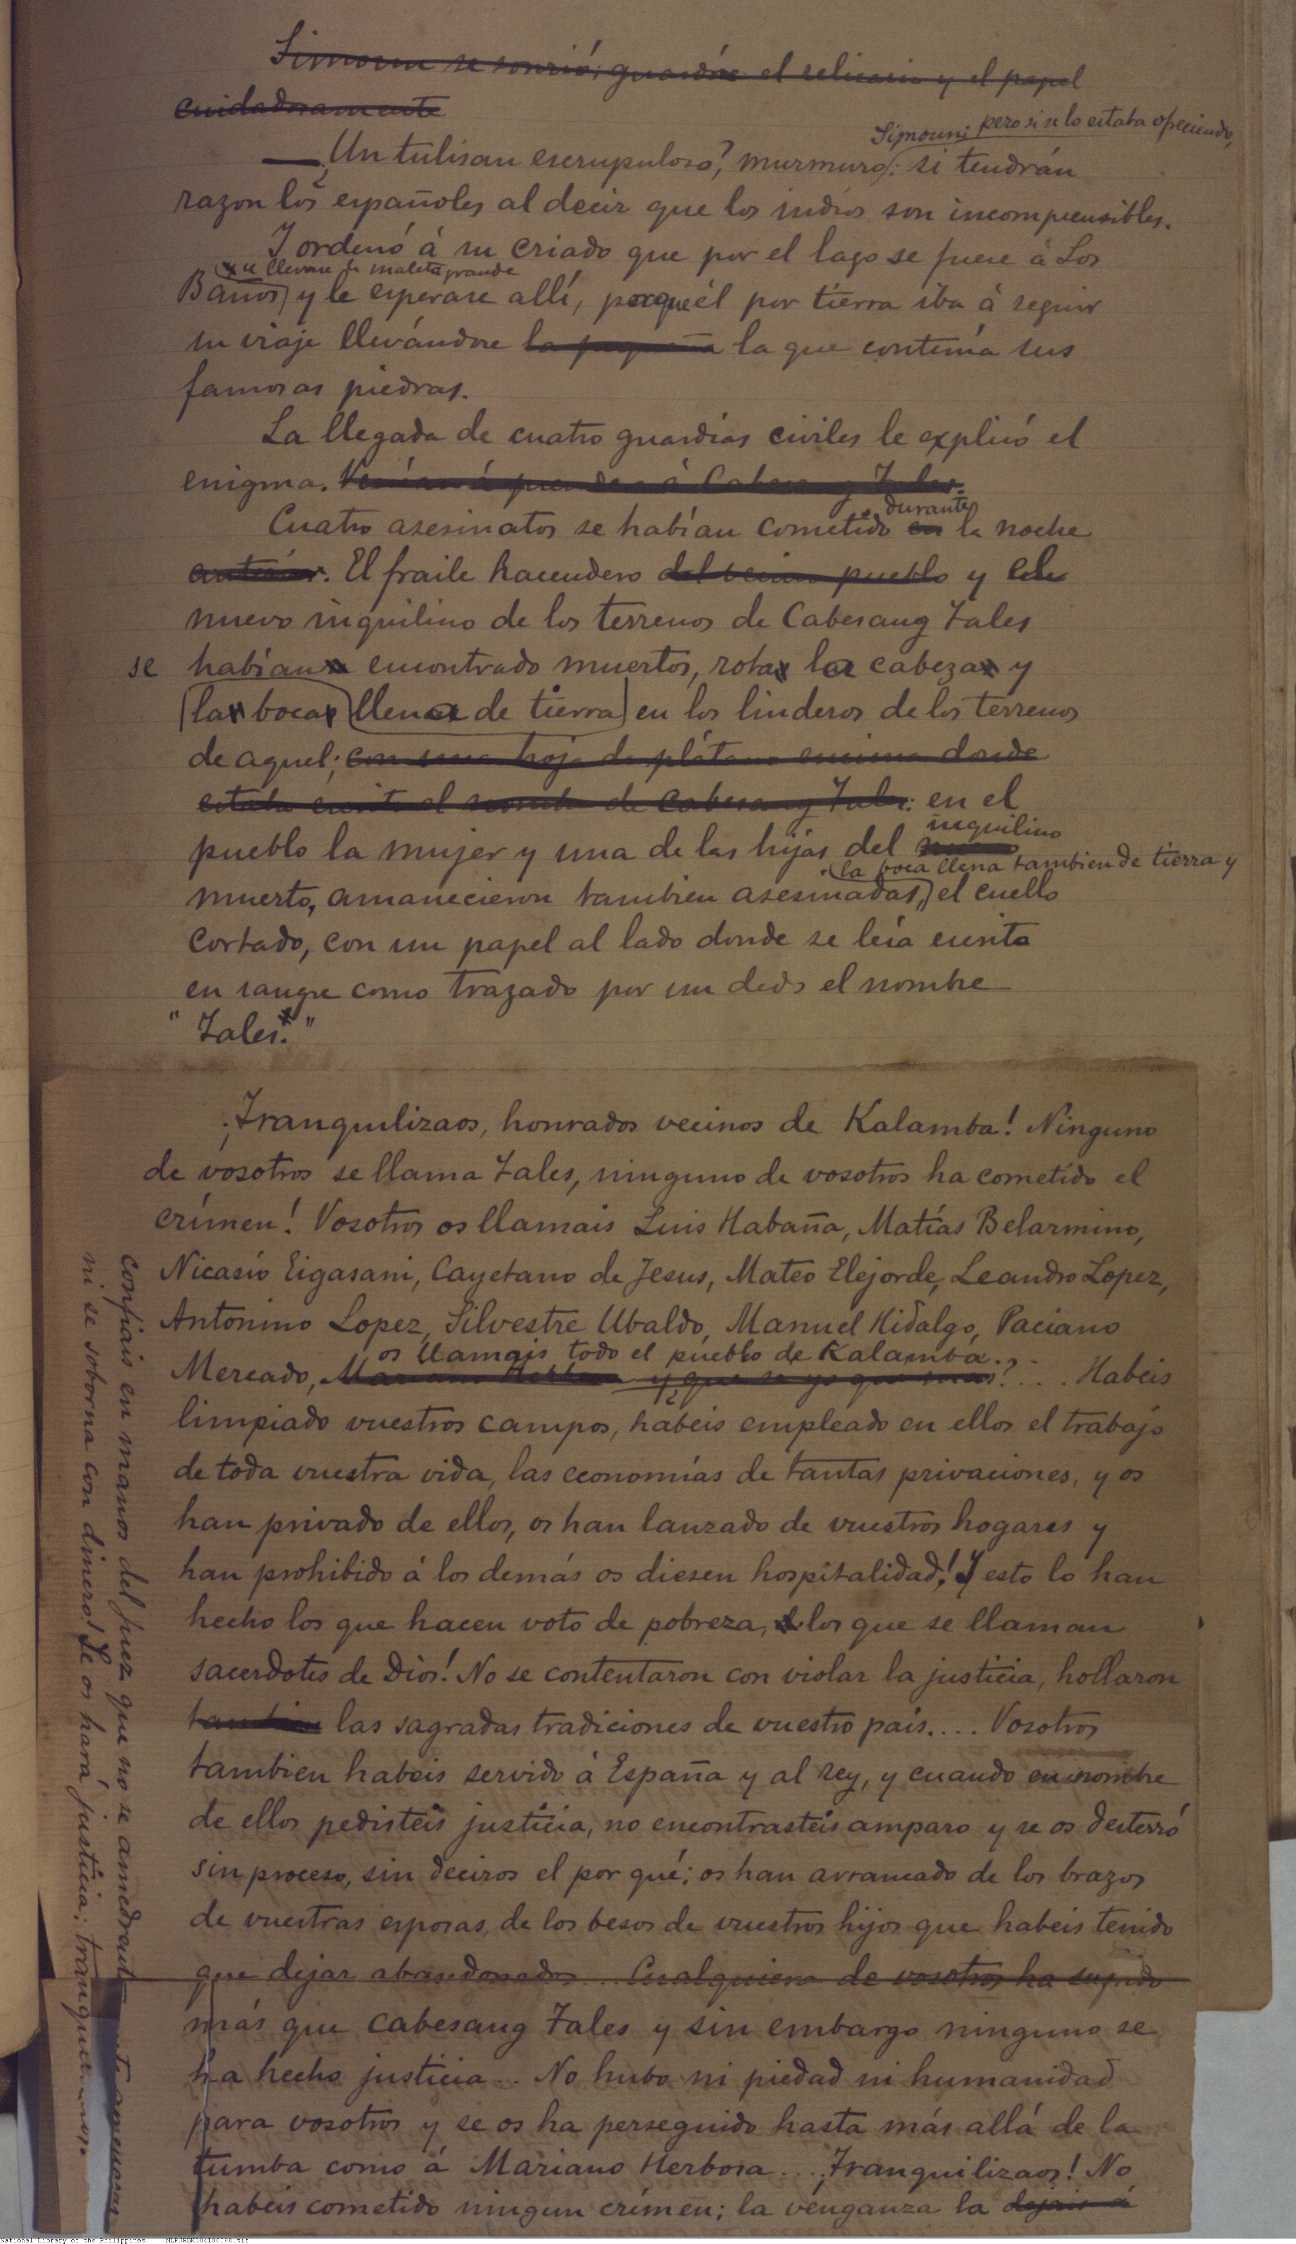 Simoun se sonrió; guardóse el relicario y el papel
cuidadosamente
Simoun; pero si se lo estaba ofreciendo,
—¿Un tulisan escrupuloso?, murmuró: si tendrán
razon los españoles al decir que los indios son incomprensibles.
Y ordenó á su criado que por el lago se fuese á Los
llevase la maleta grande
Baños y le esperase allí, porque él por tierra iba á seguir
su viaje llevándose la pequeña la que contenía sus
famosas piedras.
La llegada de cuatro guardias civiles le explicó el
enigma. Venían á prender á Cabesang Tales.
durante
Cuatro asesinatos se habían cometido en la noche
anterior. El fraile hacendero del vecino pueblo y el
nuevo inquilino de los terrenos de Cabesang Tales
se habían encontrado muertos, rota la cabeza y
la boca llena de tierra en los linderos de los terrenos
de aquel; con una hoja de plátano encima donde
estaba escrito el nombre de Cabesang Tales: en el
inquilino
pueblo la mujer y una de las hijas del
la boca llena tambien de tierra y
muerto, amanecieron tambien asesinadas, el cuello
cortado, con un papel al lado donde se leía escrito
en sangre como trazado por un dedo el nombre
"Tales."
¡Tranquilizaos, honrados vecinos de Kalamba! Ninguno
de vosotros se llama Tales, ninguno de vosotros ha cometido el
crímen! Vosotros os llamais Luis Habaña, Matías Belarmino,
Nicasio Eigasani, Cayetano de Jesus, Mateo Elejorde, Leandro Lopez,
Antonino Lopez, Silvestre Ubaldo, Manuel Hidalgo, Paciano
os llamais todo el pueblo de Kalamba.
Mercado, Mariano Herbosa y ¿que se yo que mas?... Habeis
limpiado vuestros campos, habeis empleado en ellos el trabajo
de toda vuestra vida, las economías de tantas privaciones, y os
han privado de ellos, os han lanzado de vuestros hogares y
han prohibido á los demás os diesen hospitalidad! Y esto lo han
hecho los que hacen voto de pobreza, los que se llaman
sacerdotes de Dios! No se contentaron con violar la justicia, hollaron
tambien las sagradas tradiciones de vuestro país.... Vosotros
tambien habeis servido á España y al rey, y cuando en nombre
de ellos pedisteis justicia, no encontrasteis amparo y se os desterró
sin proceso, sin deciros el por qué; os han arrancado de los brazos
de vuestras esposas, de los besos de vuestros hijos que habeis tenido
que dejar abandonados... Cualquiera de vosotros ha sufrido
más que Cabesang Tales y sin embargo ninguno se
ha hecho justicia... No hubo ni piedad ni humanidad
para vosotros y se os ha perseguido hasta más allá de la
tumba como á Mariano Herbosa... ¡Tranquilizaos! No
habeis cometido ningun crímen; la venganza la dejais á
confiais en manos del juez que no se amedrenta
ni se soborna con dinero! Se os hará justicia; tranquilizaos.